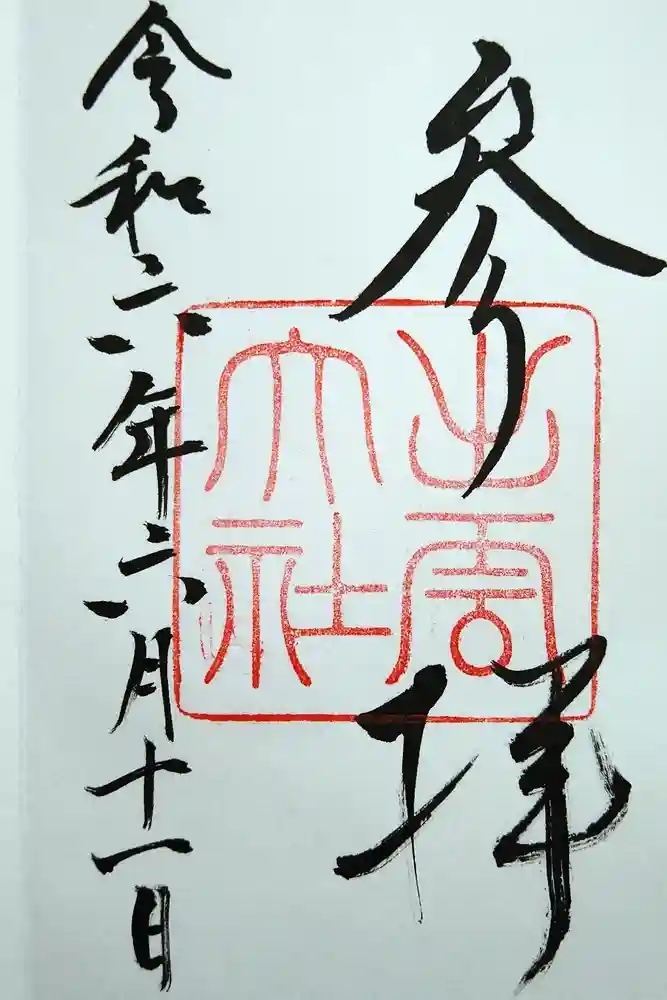 参拝
出雲大社
令和六年六月十一日